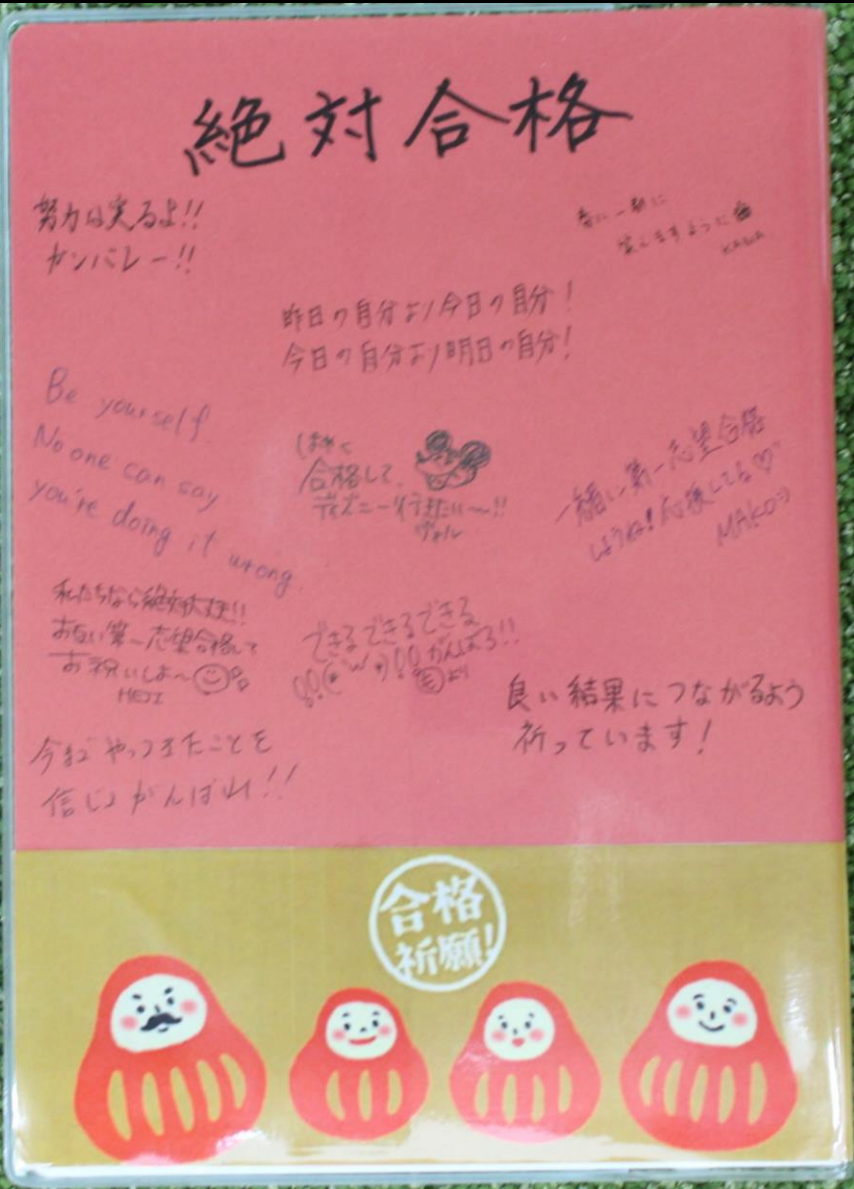 絶対合格
努力は実るよ!!
ガンバレー!!
春に一緒に
笑えますように
KANA
昨日の自分より今日の自分!
今日の自分より明日の自分!
Be yourself
No one can say
you're doing it wrong.
はやく
合格して、
ディズニー行きたい〜!!
一緒に第一志望合格
しようね!応援してる♡
MAKO
私たちなら絶対大丈夫!!
お互い第一志望合格して
お祝いしよ〜
できるできるできる
がんばろ!!
より
良い結果につながるよう
祈っています!
今までやってきたことを
信じてがんばれ!!
合格
祈願!